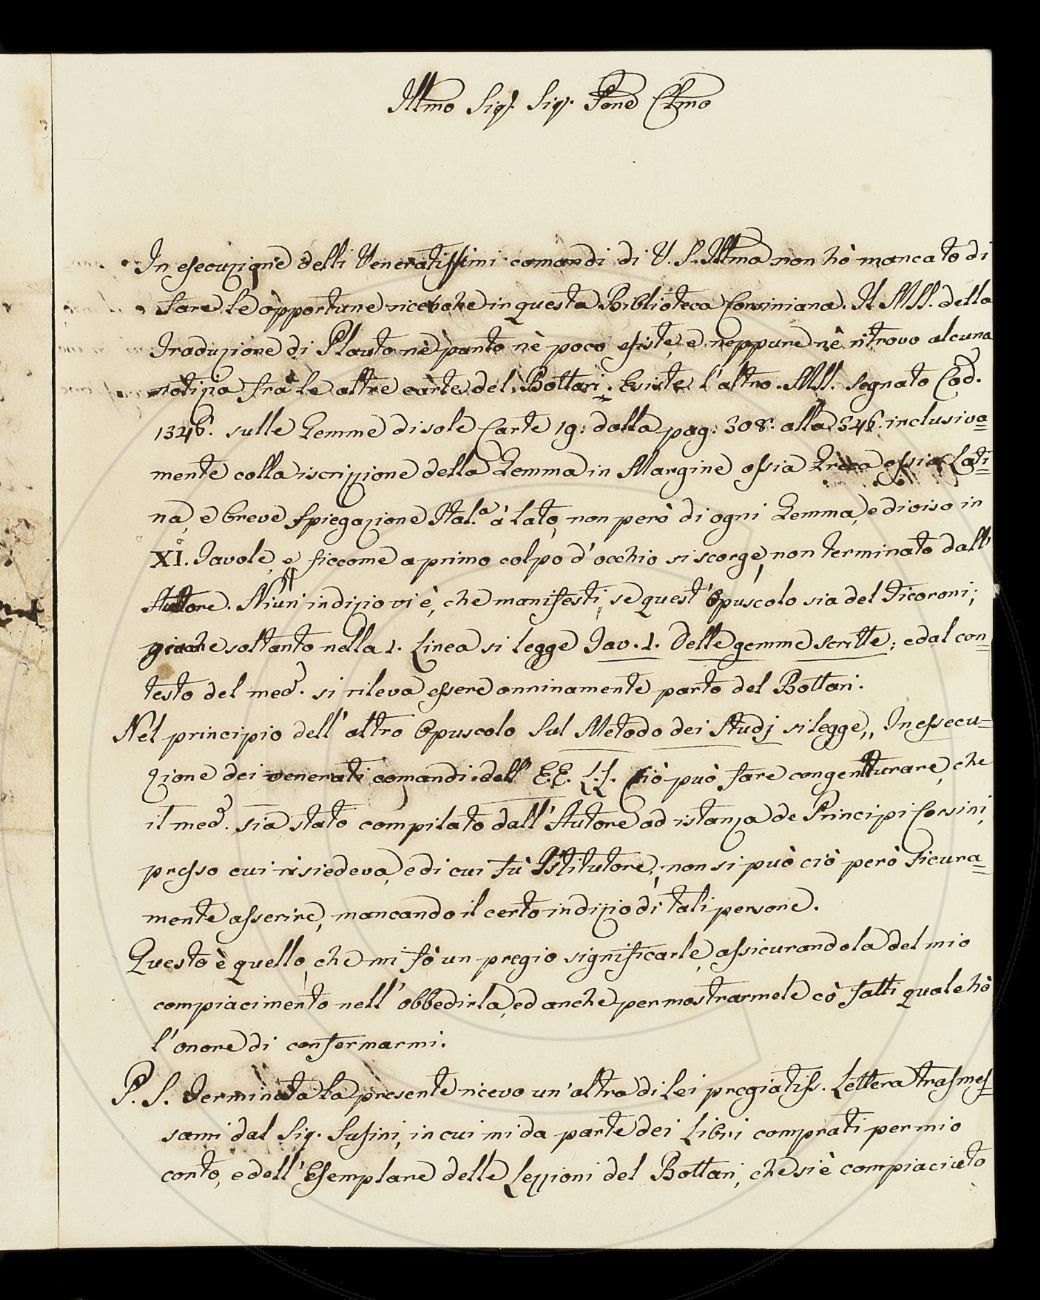 Illmo Sigr. Sigr. Pone Clmo
In esecuzione delli Veneratissimi comandi di V. S. Illma non hò mancato di
fare le opportune ricerche in questa Biblioteca Corsiniana. Il MSS. della
Traduzione di Plauto nè punto nè poco esiste, e neppure nè ritrovo alcuna
notizia frà le altre carte del Bottari. Esiste l'altro MSS. segnato Cod.
1346. sulle Gemme di sole Carte 19: dalla pag: 308. alla 346. inclusiva=
mente colla iscrizzione della Gemma in Margine ossia Greca ossia Lati=
na, e breve spiegazione Ital.a à lato, non però di ogni Gemma, e diviso in
XI. Tavole, e siccome a primo colpo d'occhio si scorge, non terminato dall'
Autore. Niun' indizio vi è, che manifesti, se quest' Opuscolo sia del Ficoroni;
giacche soltanto nella 1. Linea si legge Tav. 1. Delle gemme scritte; e dal con=
testo del med.o si rileva essere onninamente parto del Bottari.
Nel principio dell' altro Opuscolo sul Metodo dei Studj si legge,, In essecu=
zione dei venerati comandi dell' E.E. L.L. Ciò può fare congentturare, che
il med.o sia stato compilato dall' Autore ad istanza de Principi Corsini,
presso cui risiedeva, e di cui fù Istitutore; non si può ciò però sicura=
mente asserire, mancando il certo indizio di tali persone.
Questo è quello, che mi fò un pregio significarle, assicurandola del mio
compiacimento nell' obbedirla, ed anche per mostrarmele cò fatti quale hò
l'onore di confermarmi.
P. S. Terminata la presente ricevo un' altra di Lei pregiatiss. Lettera trasmes=
sami dal Sig. Susini, in cui mi da parte dei Libri comprati per mio
conto, e dell' Esemplare delle Lezzioni del Bottari, che si è compiaciuto